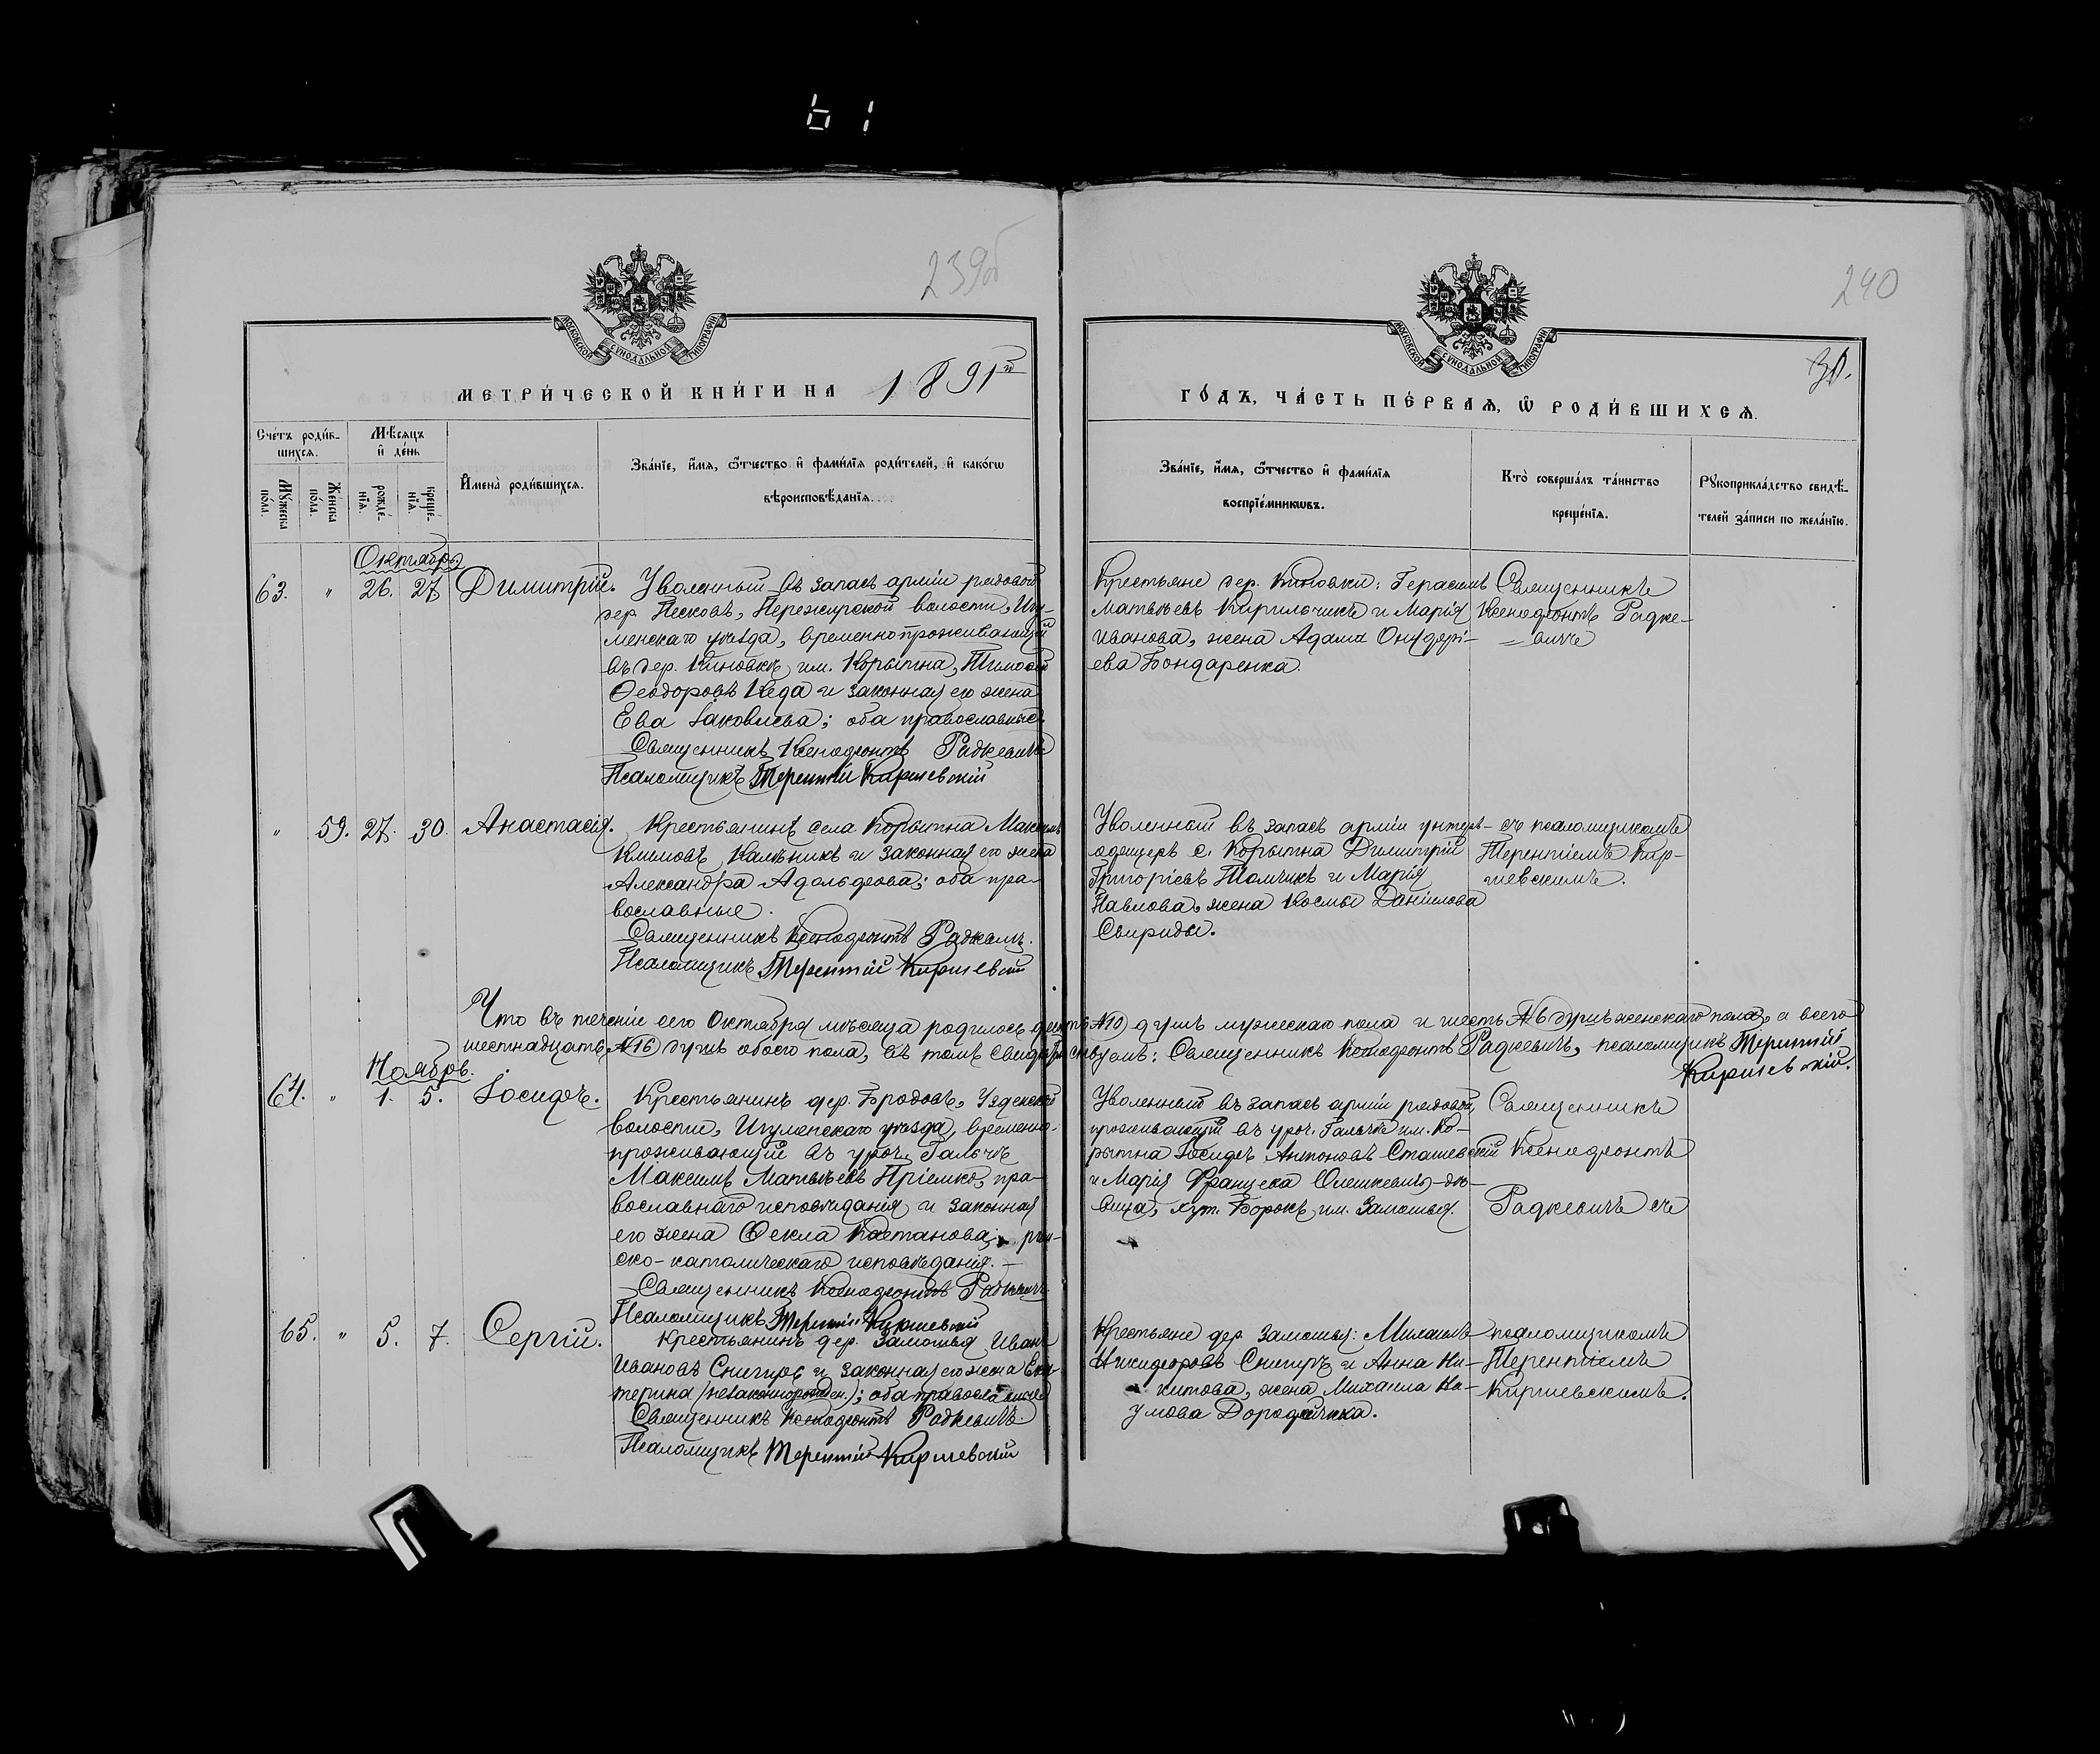 61
239об
240
МОСКОВСКОЙ СѴНОДАЛЬНОЙ ТИПОГРАФІИ
МОСКОВСКОЙ СѴНОДАЛЬНОЙ ТИПОГРАФІИ
30.
МЕТРИ́ЧЕСКОЙ КНИ́ГИ НА 1891й
ГО́ДЪ, ЧА́СТЬ ПЕ́РВАѦ, Ѽ РОДИ́ВШИХСѦ.
Сче́тъ роди́в-
шихсѧ.
Мѣ́сѧцъ
и҆ де́нь
Мꙋ́жеска по́ла.
Же́нска по́ла.
рожде́-нїѧ.
креще́-нїѧ.
И҆мена̀ роди́вшихсѧ.
Зва́нїе, и҆́мѧ, ѻ҆́тчество и҆ фами́лїѧ роди́телей, и҆ како́гѡ
вѣроисповѣ́данїѧ.
Зва́нїе, и҆́мѧ, ѻ҆́тчество и҆ фами́лїѧ
воспрїе́мникѡвъ.
Кто̀ соверша́лъ та́инство
креще́нїѧ.
Рꙋкоприкла́дство свидѣ́-
телей за́писи по жела́нїю.
Октябрь
63. " 26. 27 Димитрій. Уволенный въ запасъ арміи рядовой
дер. Песковъ, Пережирской волости, Игу-
менскаго уѣзда, временно проживающій
въ дер. Киновкѣ им. Корытна, Тимоѳей
Ѳеодоровъ Кеда и законная его жена
Ева Іаковлева; оба православные.
Священникъ Ксенофонтъ Радкевичъ
Псаломщикъ Терентій Киршевскій
Крестьяне дер. Киновки: Герасимъ
Матвѣевъ Кирильчикъ и Марія
Иванова, жена Адама Онуфрі-
ева Бондаренка.
Священникъ
Ксенофонтъ Радке-
вичъ
" 59. 27. 30. Анастасія. Крестьянинъ села Корытна Максимъ
Климовъ Калѣникъ и законная его жена
Александра Адольфова; оба пра-
вославные.
Священникъ Ксенофонтъ Радкевичъ.
Псаломщикъ Терентій Киршевскій
Уволенный въ запасъ арміи унтеръ-
офицеръ с. Корытна Димитрій
Григорьевъ Толчикъ и Марія
Павлова, жена Космы Даніилова
Свириды.
съ псаломщикомъ
Терентіемъ Кир-
шевскимъ.
Что въ теченіе сего Октября мѣсяца родилось десять №10) душъ мужескаго пола и шесть №6 душъ женскаго пола, а всего
шестнадцать №16) душъ обоего пола, въ томъ свидѣтельствуемъ: Священникъ Ксенофонтъ Радкевичъ, псаломщикъ Терентій
Киршевскій.
Ноябрь.
64. " 1. 5. Іосифъ. Крестьянинъ дер. Бродовъ, Узденской
волости, Игуменскаго уѣзда, временно-
проживающій въ уроч. Гальчѣ
Максимъ Матвѣевъ Пріемко, пра-
вославнаго исповѣданія, и законная
его жена Ѳекла Каетанова, рим-
ско-католическаго исповѣданія.
Священникъ Ксенофонтъ Радкевичъ.
Псаломщикъ Терентій Киршевскій
Уволенный въ запасъ арміи рядовой,
проживающій въ уроч. Гальчѣ им. Ко-
рытна Іосифъ Антоновъ Сташевскій
и Марія Францева Олешкевичъ-дѣ-
вица, хут. Борокъ им. Замошья.
Священникъ
Ксенофонтъ
Радкевичъ съ
65. " 5. 7. Сергій. Крестьянинъ дер. Замошья Иванъ
Ивановъ Снигирь и законная его жена Ека-
терина (незаконнорожден.); оба православные
Священникъ Ксенофонтъ Радкевичъ.
Псаломщикъ Терентій Киршевскій
Крестьяне дер. Замошья: Михаилъ
Никифоровъ Снигирь и Анна Ни-
китова, жена Михаила На-
умова Дорофейчика.
псаломщикомъ
Терентіемъ
Киршевскимъ.